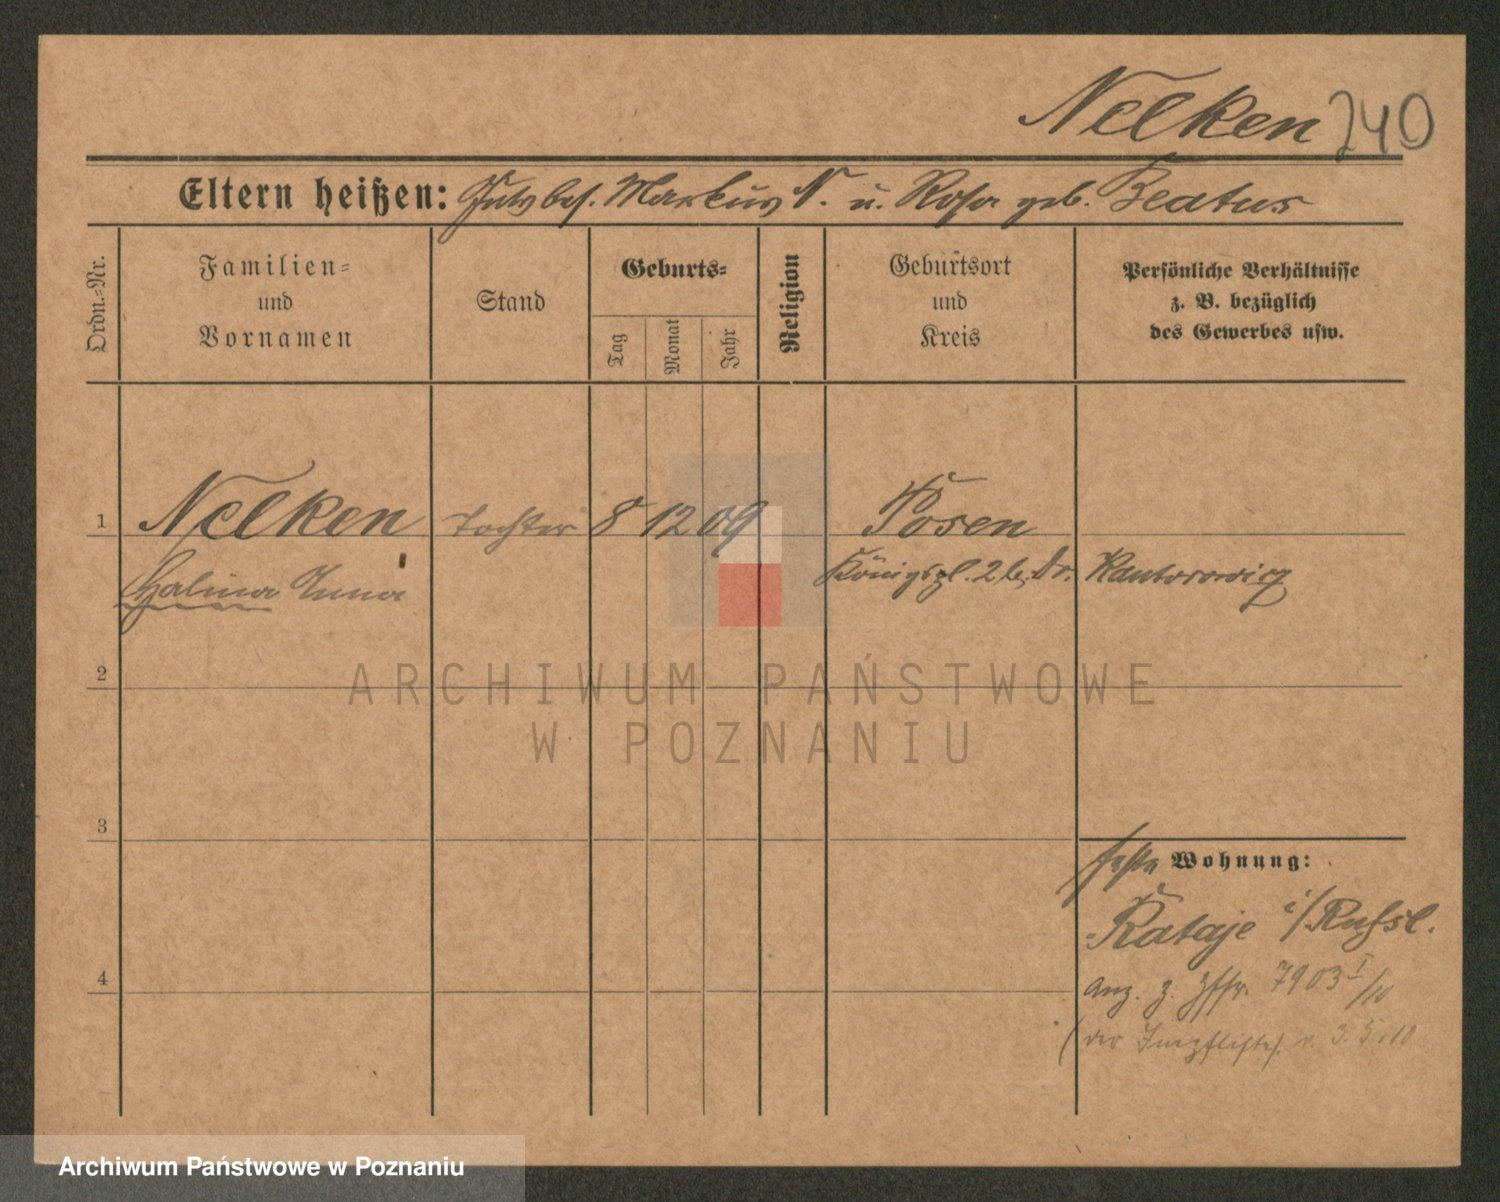 Nelken 240
Eltern heißen: Gutsbes. Markus N. u. Rosa geb. Beatus
Ordn.=Nr.
Familien=
und
Vornamen
Stand
Geburts=
Tag
Monat
Jahr
Religion
Geburtsort
und
Kreis
Persönliche Verhältnisse
z. B. bezüglich
des Gewerbes usw.
1 Nelken Tochter 8 12 09 Posen
Halina Anna Königspl. 2 b. Dr. Kantorowicz
2
ARCHIWUM PAŃSTWOWE
W POZNANIU
3
feste Wohnung:
Rataje i/Rußl.
4
Anz. z. Ziffr. 7903 I/10
(der Impfliste) v. 3.5.10
Archiwum Państwowe w Poznaniu